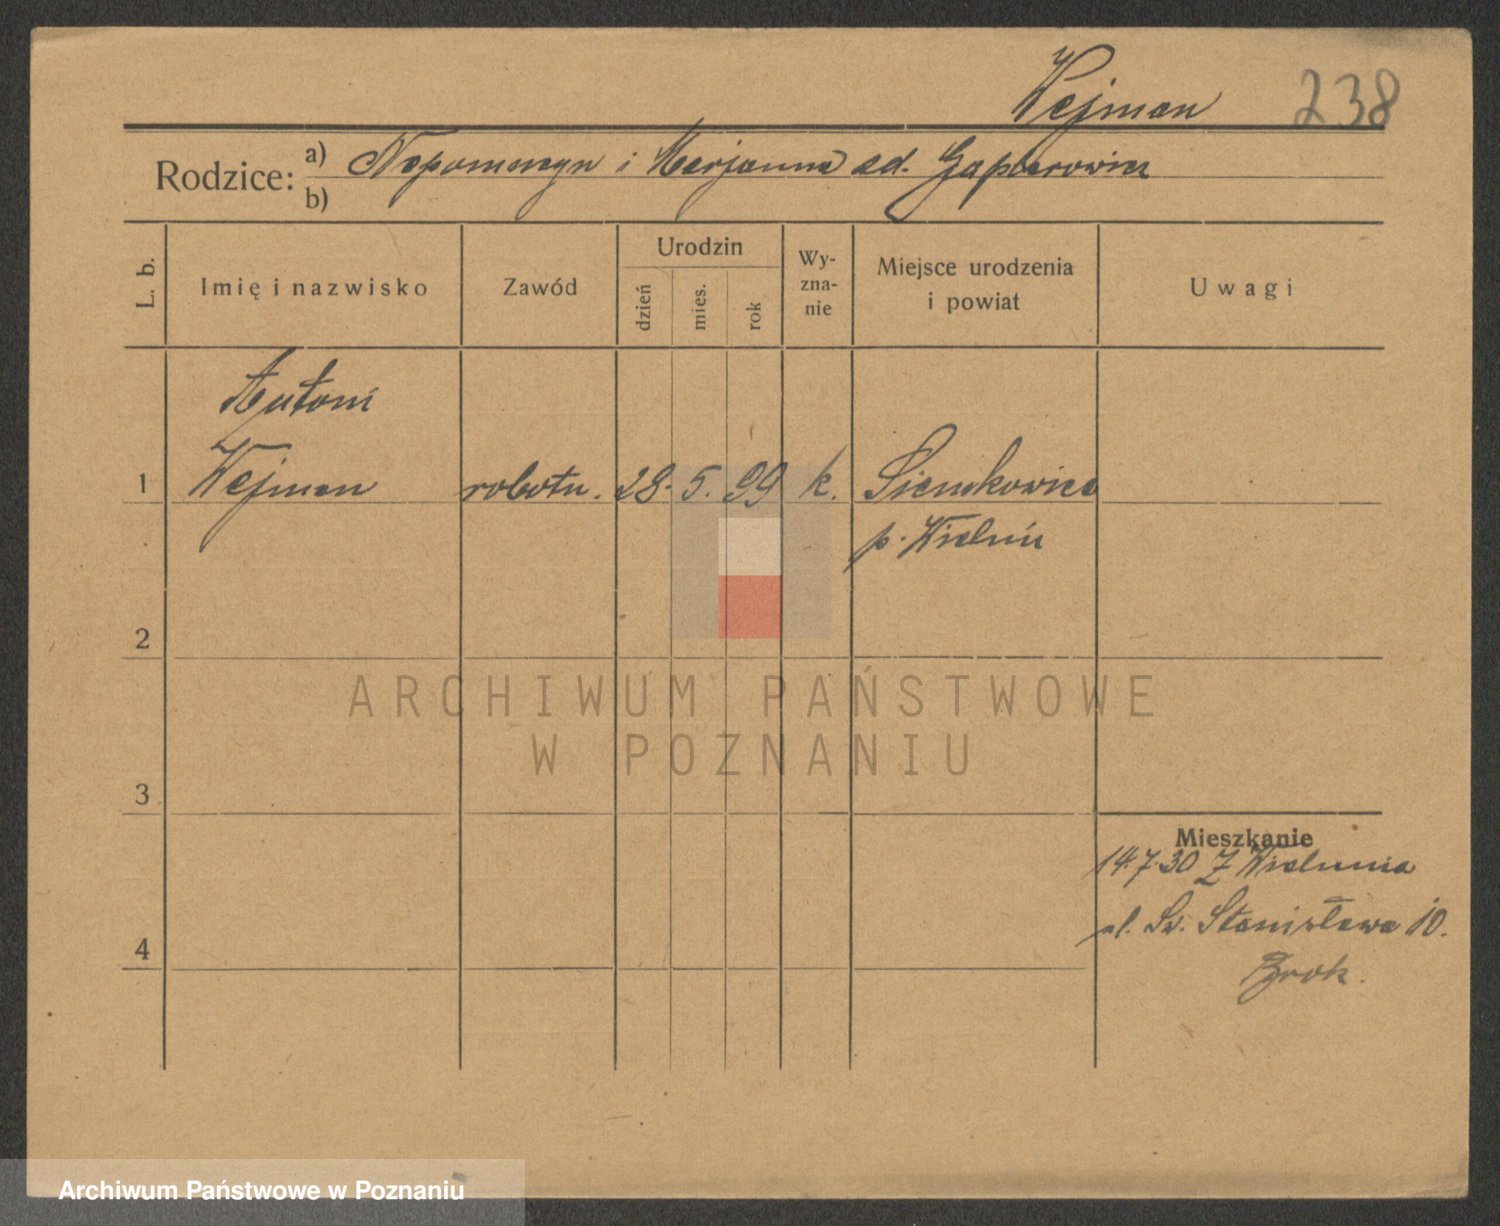 Wejman 238
Rodzice: a) Nepomucyn i Marjanna zd.
b)
L. b. Imię i nazwisko Zawód Urodzin dzień mies. rok Wy-zna-nie Miejsce urodzenia i powiat Uwagi
Antoni
1 Wejman robotn. 28. 5. 99 k. Siemkowice
p. Wieluń
2
ARCHIWUM PAŃSTWOWE
W POZNANIU
3
Mieszkanie
14.7.30 Z Wielunia
ul. Św. Stanisława 10.
4
Archiwum Państwowe w Poznaniu